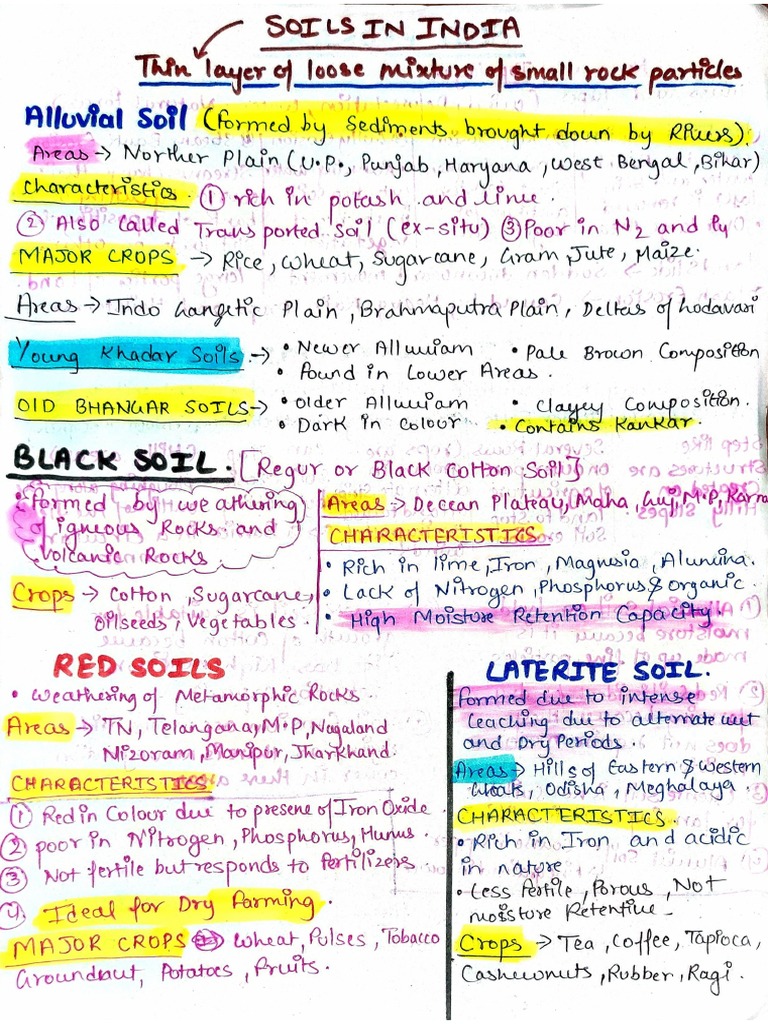 SOILS IN INDIA
Thin layer of loose mixture of small rock particles
Alluvial Soil (formed by sediments brought down by Rivers).
Areas → Norther Plain (U.P., Punjab, Haryana, West Bengal, Bihar)
Characteristics ① rich in potash and lime.
② Also called Transported Soil (ex-situ) ③ Poor in N2 and Py
MAJOR CROPS → Rice, Wheat, Sugarcane, Gram, Jute, Maize.
Areas → Indo Gangetic Plain, Brahmaputra Plain, Deltas of Godavari
Young Khadar Soils → • Newer Alluviam • Pale Brown Composition
• Found in Lower Areas.
OLD BHANGAR SOILS → • Older Alluviam • Clayey Composition.
• Dark in Colour • Contains Kankar.
BLACK SOIL. [Regur or Black Cotton Soil]
• Formed by weathering
of igneous Rocks and
Volcanic Rocks
Crops → Cotton, Sugarcane,
oilseeds, Vegetables.
Areas → Deccan Plateau, Maha, Guj, M.P, Karna
CHARACTERISTICS
• Rich in lime, Iron, Magnesia, Alumina.
• Lack of Nitrogen, Phosphorus & organic.
• High Moisture Retention Capacity.
RED SOILS
• Weathering of Metamorphic Rocks
Areas → TN, Telangana, M.P, Nagaland
Mizoram, Manipur, Jharkhand.
CHARACTERISTICS
① Red in Colour due to presene of Iron Oxide
② poor in Nitrogen, Phosphorus, Humus.
③ Not fertile but responds to fertilizers.
④ Ideal for Dry Farming.
MAJOR CROPS → Wheat, Pulses, Tobacco
Groundnut, Potatoes, Fruits.
LATERITE SOIL.
Formed due to intense
leaching due to alternate wet
and Dry Periods.
Areas → Hills of Eastern & Western
Ghats, Odisha, Meghalaya.
CHARACTERISTICS.
• Rich in Iron and acidic
in nature
• Less fertile, Porous, Not
moisture Retentive
Crops → Tea, Coffee, Tapioca,
Cashewnuts, Rubber, Ragi.